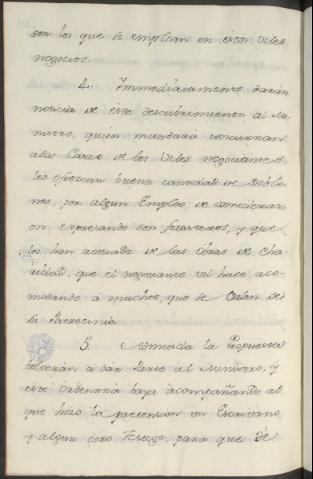 son los que se emplean en estos viles
negocios.
4. Immediatamente darán
noticia de este descubrimiento al Mi-
nistro, quien mandará concurran
a las Casas de los viles negociantes
les ofrezcan buena cantidad de Doblo-
nes, por algun Empleo de
on expresando son forasteros, y que
los han de las obras de cha-
ridad, que el negociante vil hace aco-
modando á muchos, que se valen de
su Patrocinio.
5. la Propuesta
bolverán á dár Parte al Ministro, y
este ordenará vaya acompañando al
que hizo la pretension un Escrivano,
y algun otro Testigo, para que de